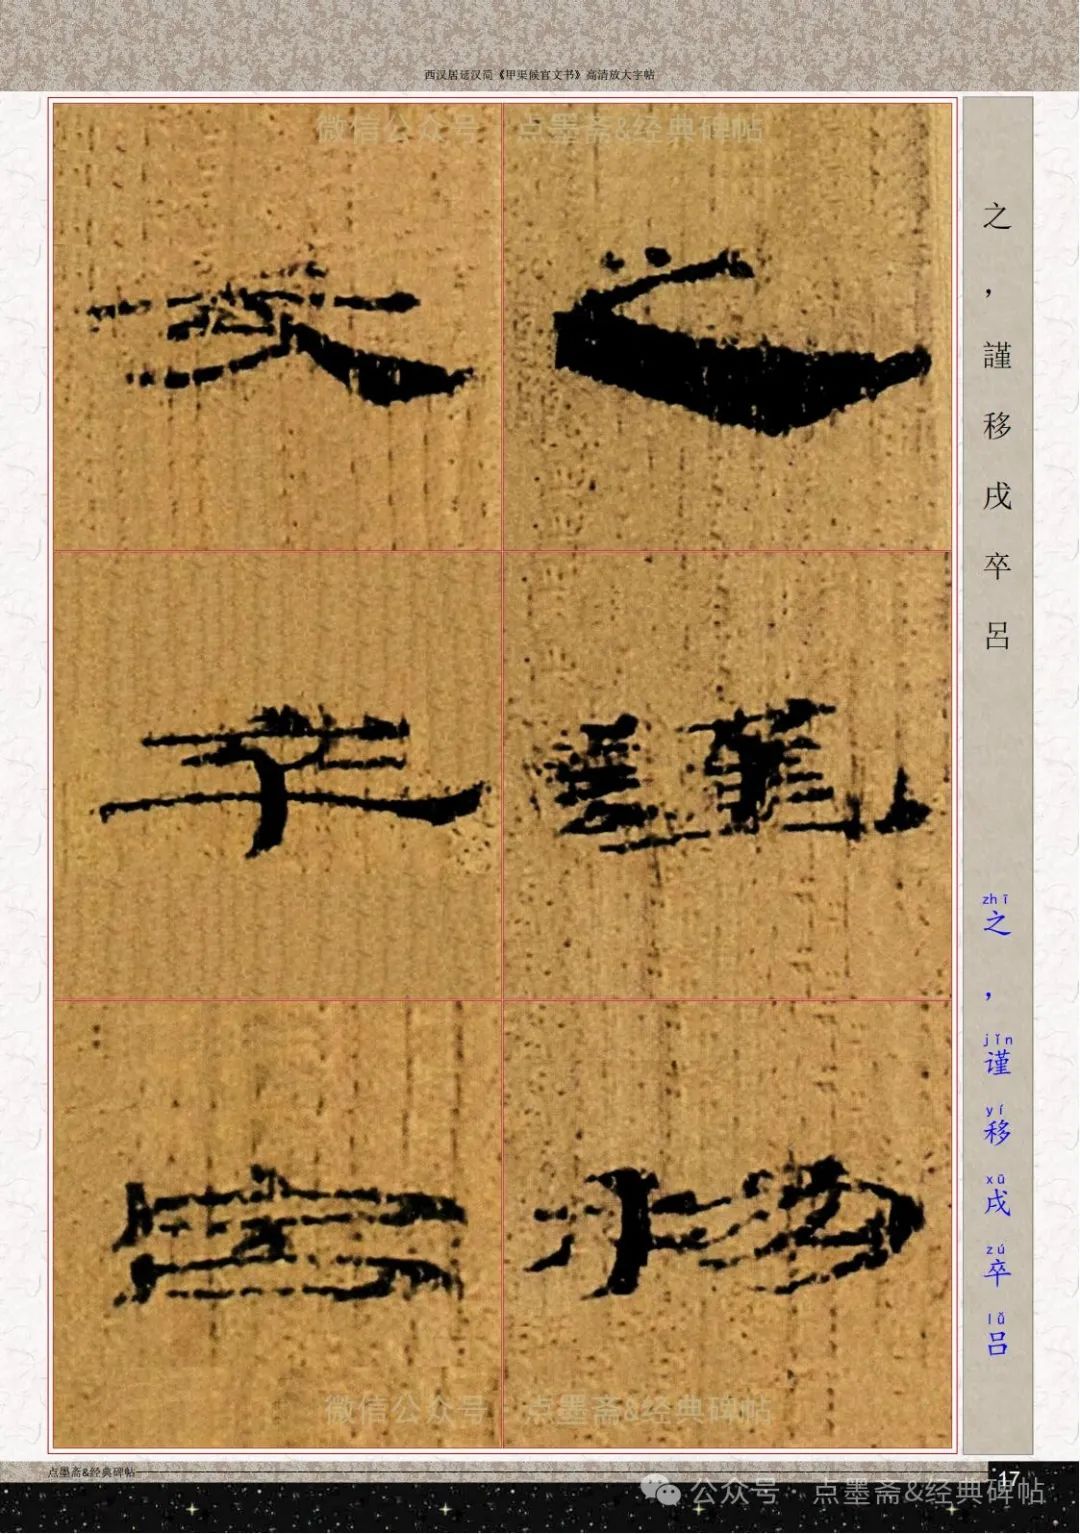 西汉居延汉简《甲渠候官文书》高清放大字帖
微信公众号 点墨斋&经典碑帖
之，謹移戌卒呂
之
謹
移
戌
卒
呂
zhī jǐn yí xū zú lǚ
之，谨移戌卒吕
微信公众号 点墨斋&经典碑帖
点墨斋&经典碑帖
17
公众号 · 点墨斋&经典碑帖